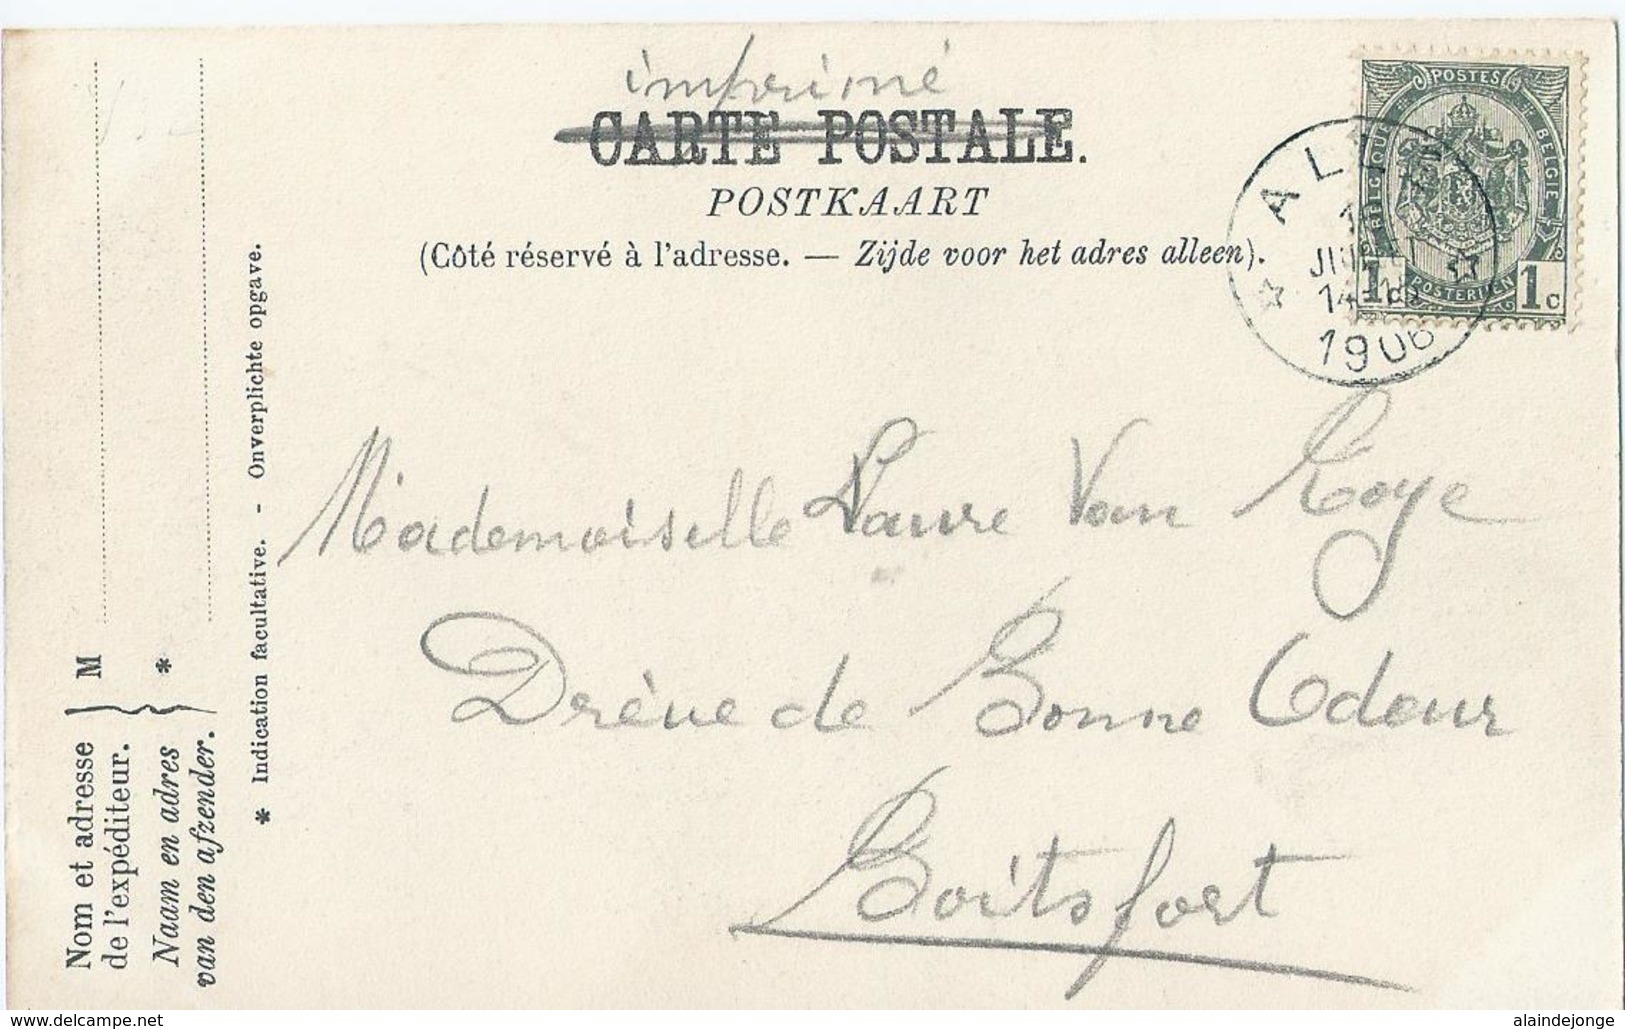 imprimé
CARTE POSTALE.
POSTKAART
(Côté réservé à l'adresse. — Zijde voor het adres alleen).
POSTES
BELGIQUE
BELGIE
POSTERIJEN
1c 1c
1906
Mademoiselle Laure Van
Drève de Bonne Odeur
Boitsfort
Nom et adresse de l'expéditeur.
Naam en adres van den afzender.
M
*
* Indication facultative. - Onverplichte opgave.
www.delcampe.net
alaindejonge